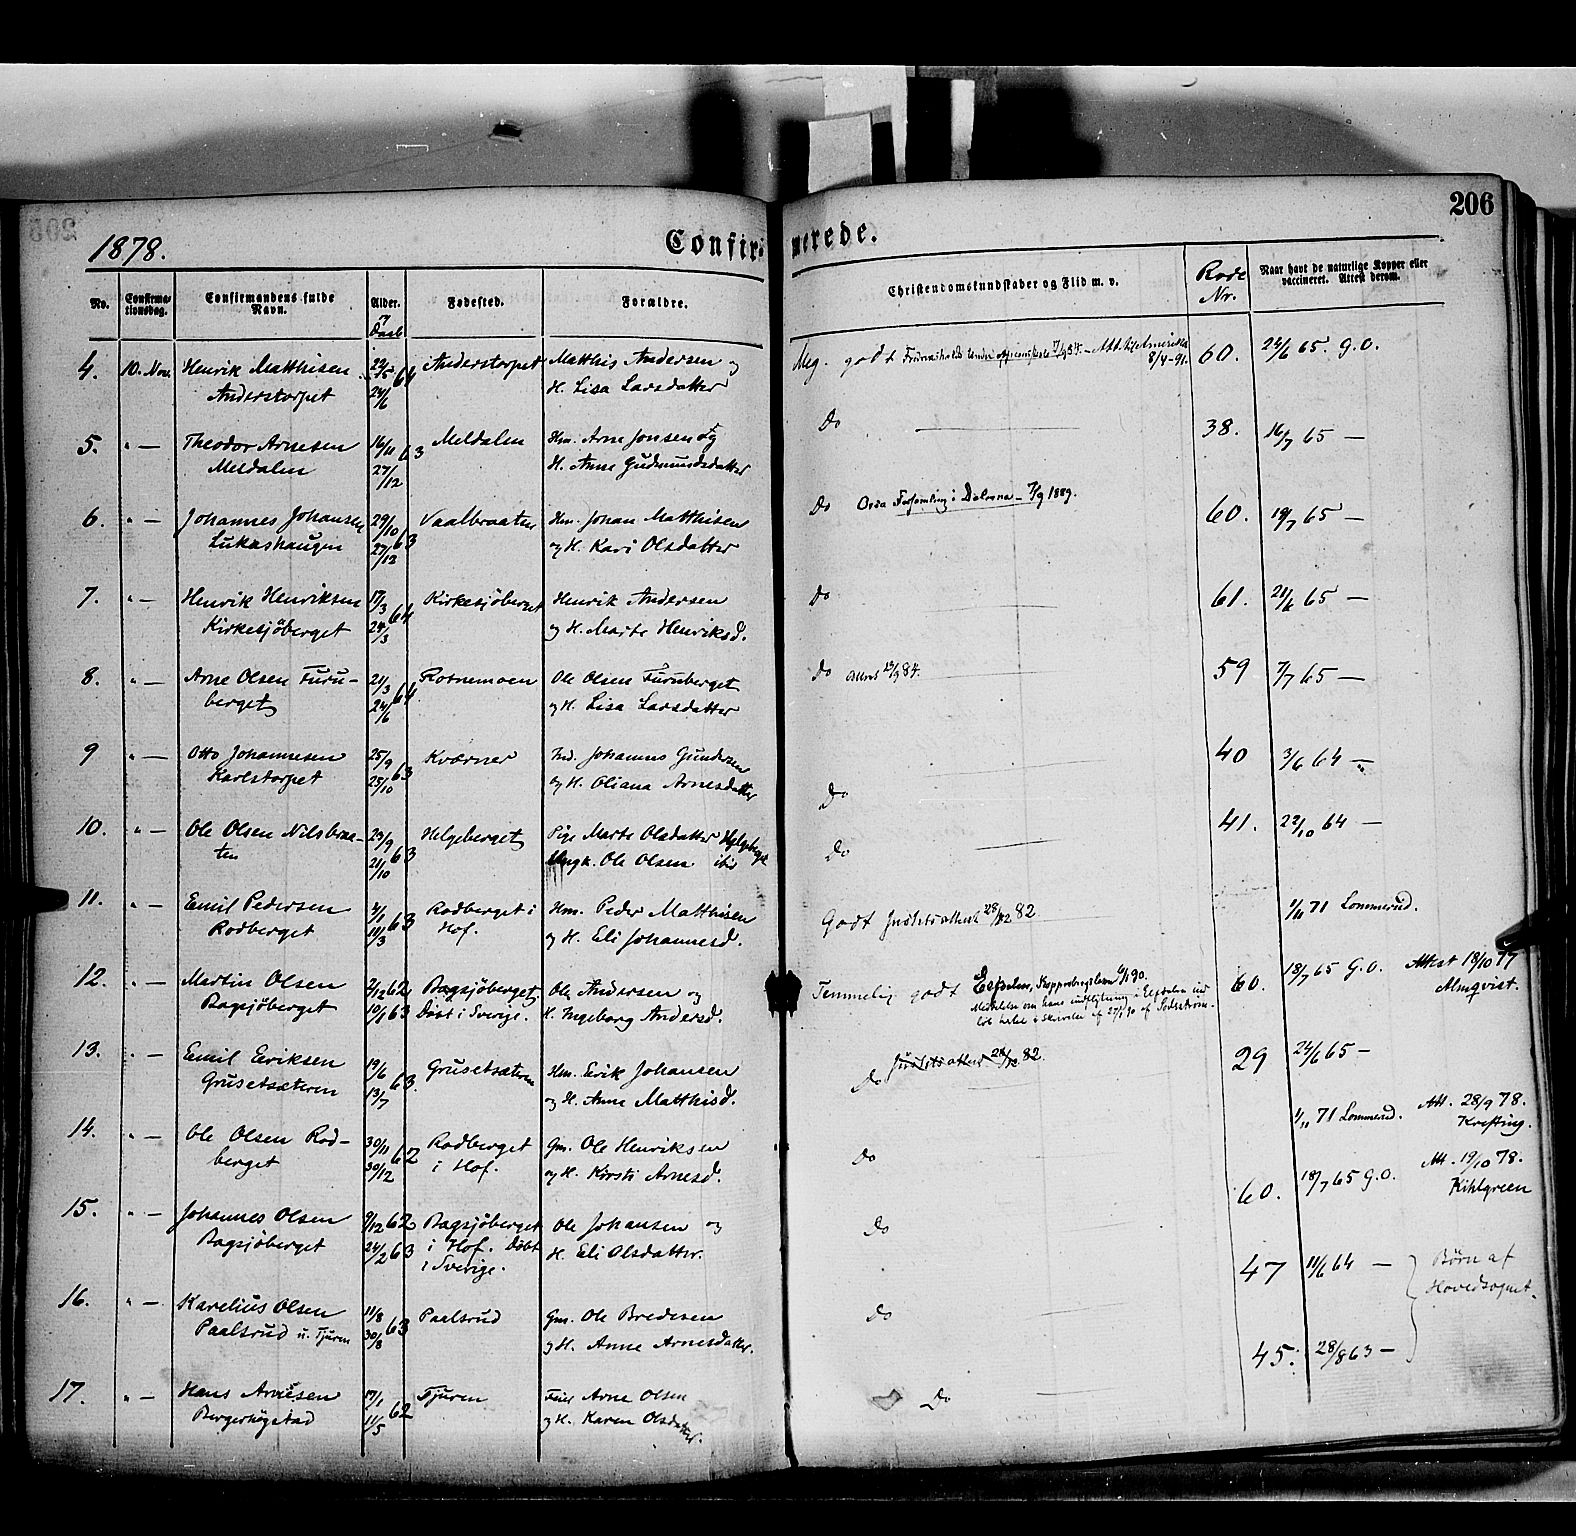 206
1878.
Confirmerede.
No.
Confirmationsdag.
Confirmandens fulde Navn.
Alder. og Daab
Fødested.
Forældre.
Christendomskundskaber og Flid m. v.
Rode Nr.
Naar havt de naturlige Kopper eller vaccineret. Attest derom.
4. 10. Nov. Henrik Matthisen 22/5 64 Anderstorpet Matthis Andersen og Meg. godt 7/9 84. - Att. til Amerika 60. 24/6 65. G.O.
Anderstorpet 24/6 H. Lisa Larsdatter 8/4-91.
5. " — Theodor Arnesen 16/11 63 Meldalen Hm. Arne Jonsen og Do 38. 16/7 65 —
Meldalen 27/12 H. Anne Gudmundsdatter
6. " — Johannes Johansen 29/10 63 Vaalbraaten Hm. Johan Matthisen Do Orsa Forsamling i Dalarna - 7/9 1889. 60. 19/7 65 —
Lukashaugen 27/12 og H. Kari Olsdatter
7. " — Henrik Henriksen 17/3 64 Kirkesjöberget Henrik Andersen Do 61. 21/6 65 —
Kirkesjöberget 24/3 og H. Marte Henriksd.
8. " — Arne Olsen Furu- 21/3 64 Rotnemoen Ole Olsen Furuberget Do Attest 13/9 84. 59 7/7 65 —
berget 24/6 og H. Lisa Larsdatter
9 " — Otto Johannesen 25/9 63 Kværner Ind. Johannes Gundersen Do 40 3/6 64 —
Karlstorpet 25/10 og H. Oliana Arnesdatter
10. " — Ole Olsen Nilsbraa- 23/9 63 Helgeberget Pige Marte Olsdatter Helgeberget Do 41. 22/10 64 —
ten 21/10 Ungk. Ole Olsen ibid
11. " — Emil Pedersen 4/1 63 Rodberget i Hm. Peder Matthisen Godt Indstsattest 28/12 82 1/11 71 Lommerud.
Rodberget 11/3 Hof. og H. Eli Johannesd.
12. " — Martin Olsen 2/12 62 Bagsjöberget Ole Andersen og Temmelig godt Elfdalen, Kopparbergslæn 6/1 90. 60. 18/7 65 G.O. Attest 18/10 77
Bagsjöberget 10/1 63 Döbt i Sverige. H. Ingeborg Andersd. Meddelelse om hans indflytning i Elfdalen Almqvist.
i Skrivelse af 27/1 90 af
13. " — Emil Eriksen 19/6 63 Grusetsæteren Hm. Erik Johansen Do Indstsattest 28/12 82. 29 24/6 65 —
Grusetsæteren 13/7 og H. Anne Matthisd.
14. " — Ole Olsen Rod- 30/11 62 Rodberget Gm. Ole Henriksen Do 1/11 71 Lommerud. Att. 28/9 78.
berget 30/12 i Hof. og H. Kirsti Arnesd. Krefting.
15. " — Johannes Olsen 9/12 62 Bagsjöberget Ole Johansen og Do 60. 18/7 65 G.O. Att. 19/10 78.
Bagsjöberget 24/2 63 i Hof. Döbt H. Eli Olsdatter. Kihlgreen
i Sverige.
16. " — Karelius Olsen 11/8 63 Paalsrud Gm. Ole Bredesen Do 47 11/6 64 — Børn af
Paalsrud u. Tjuren 30/8 og H. Anne Arnesdatter. Hovedsognet.
17. " — Hans Arnesen 17/1 62 Tjuren Arne Olsen Do 45. 28/8 63 —
Bergerhögstad 11/5 og H. Karen Olsdatter.